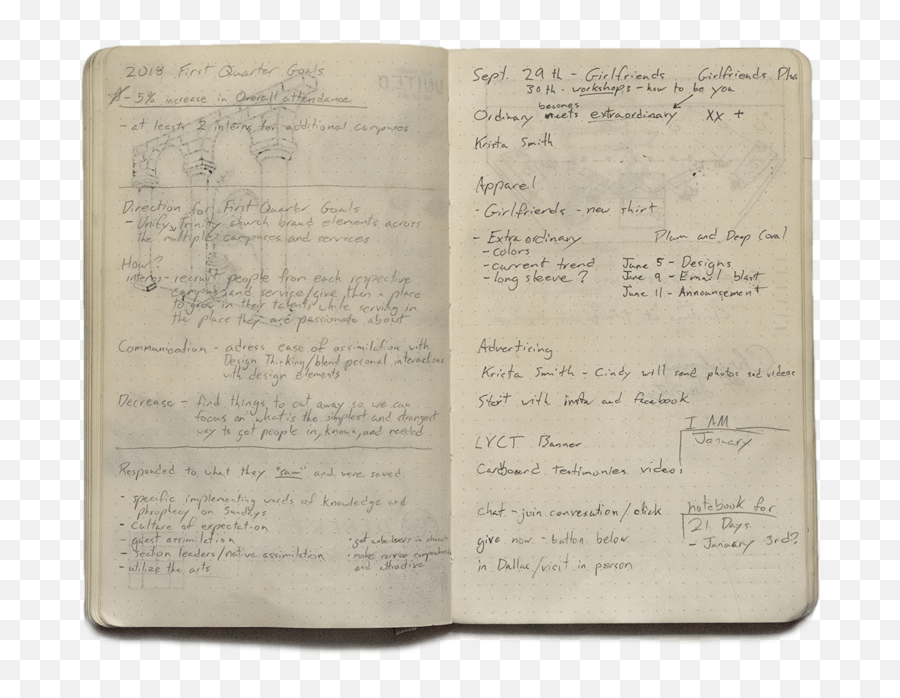 2018 First Quarter Goals
- 5% increase in Overall attendance
- at least 2 interns for additional campuses
Direction for First Quarter Goals
- Unify Trinity church brand elements across
the multiple campuses and services
How?
interns - recruit people from each respective
campus and service/give them a place
to grow in their talents while serving in
the place they are passionate about
Communication - adress ease of assimilation with
Design Thinking/blend pesonal interactions
with design elements
Decrease - find things to cut away so we can
focus on what is the simplest and strongest
way to get people in, known, and needed
Responded to what they "saw" and were saved
- specific implementing words of knowledge and
prophecy on Sundays
- culture of expectation
- guest assimilation
- section leaders/native assimilation
- utilize the arts
• get unbelievers in church
• make service comprehensive
and attractive
UNITED
Sept. 29th - Girlfriends Girlfriends Plus
30th - workshops - how to be you
becomes
Ordinary meets extraordinary XX +
Krista Smith
Apparel
- Girlfriends - new shirt
- Extraordinary Plum and Deep Coral
- colors
- current trend June 5 - Designs
- long sleeve ? June 9 - Email blast
June 11 - Announcement
Advertising
Krista Smith - Cindy will send photos and videos
Start with insta and facebook
I AM
January
LYCT Banner
Cardboard testimonies video
chat - join conversation/click
notebook for
21 Days
- January 3rd?
give now - button below
in Dallas/visit in person